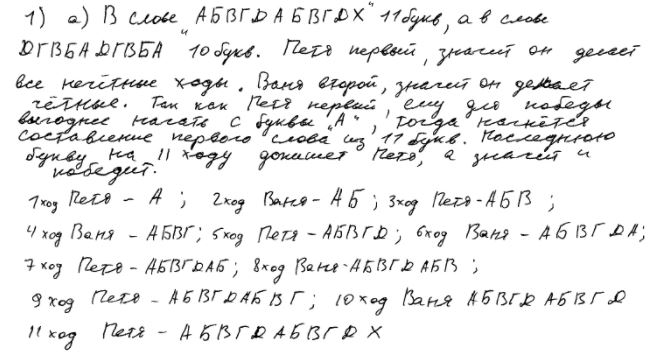 1) а) В слове АБВГДАБВГДХ" 11 букв, а в слове
ДГВБАДГВБА" 10 букв. Петя первый, значит он делает
все нечётные ходы. Ваня второй, значит он делает
чётные. Так как Петя первый, ему для победы
выгоднее начать с буквы "А", тогда начнётся
составление первого слова из 11 букв. Последнюю
букву на 11 ходу допишет Петя, а значит и
победит.
1 ход Петя - А ; 2 ход Ваня - АБ ; 3 ход Петя - АБВ ;
4 ход Ваня - АБВГ; 5 ход Петя - АБВГД ; 6 ход Ваня - АБВГДА;
7 ход Петя - АБВГДАБ ; 8 ход Ваня - АБВГДАБВ ;
9 ход Петя - АБВГДАБВГ ; 10 ход Ваня АБВГДАБВГД
11 ход Петя - АБВГДАБВГДХ